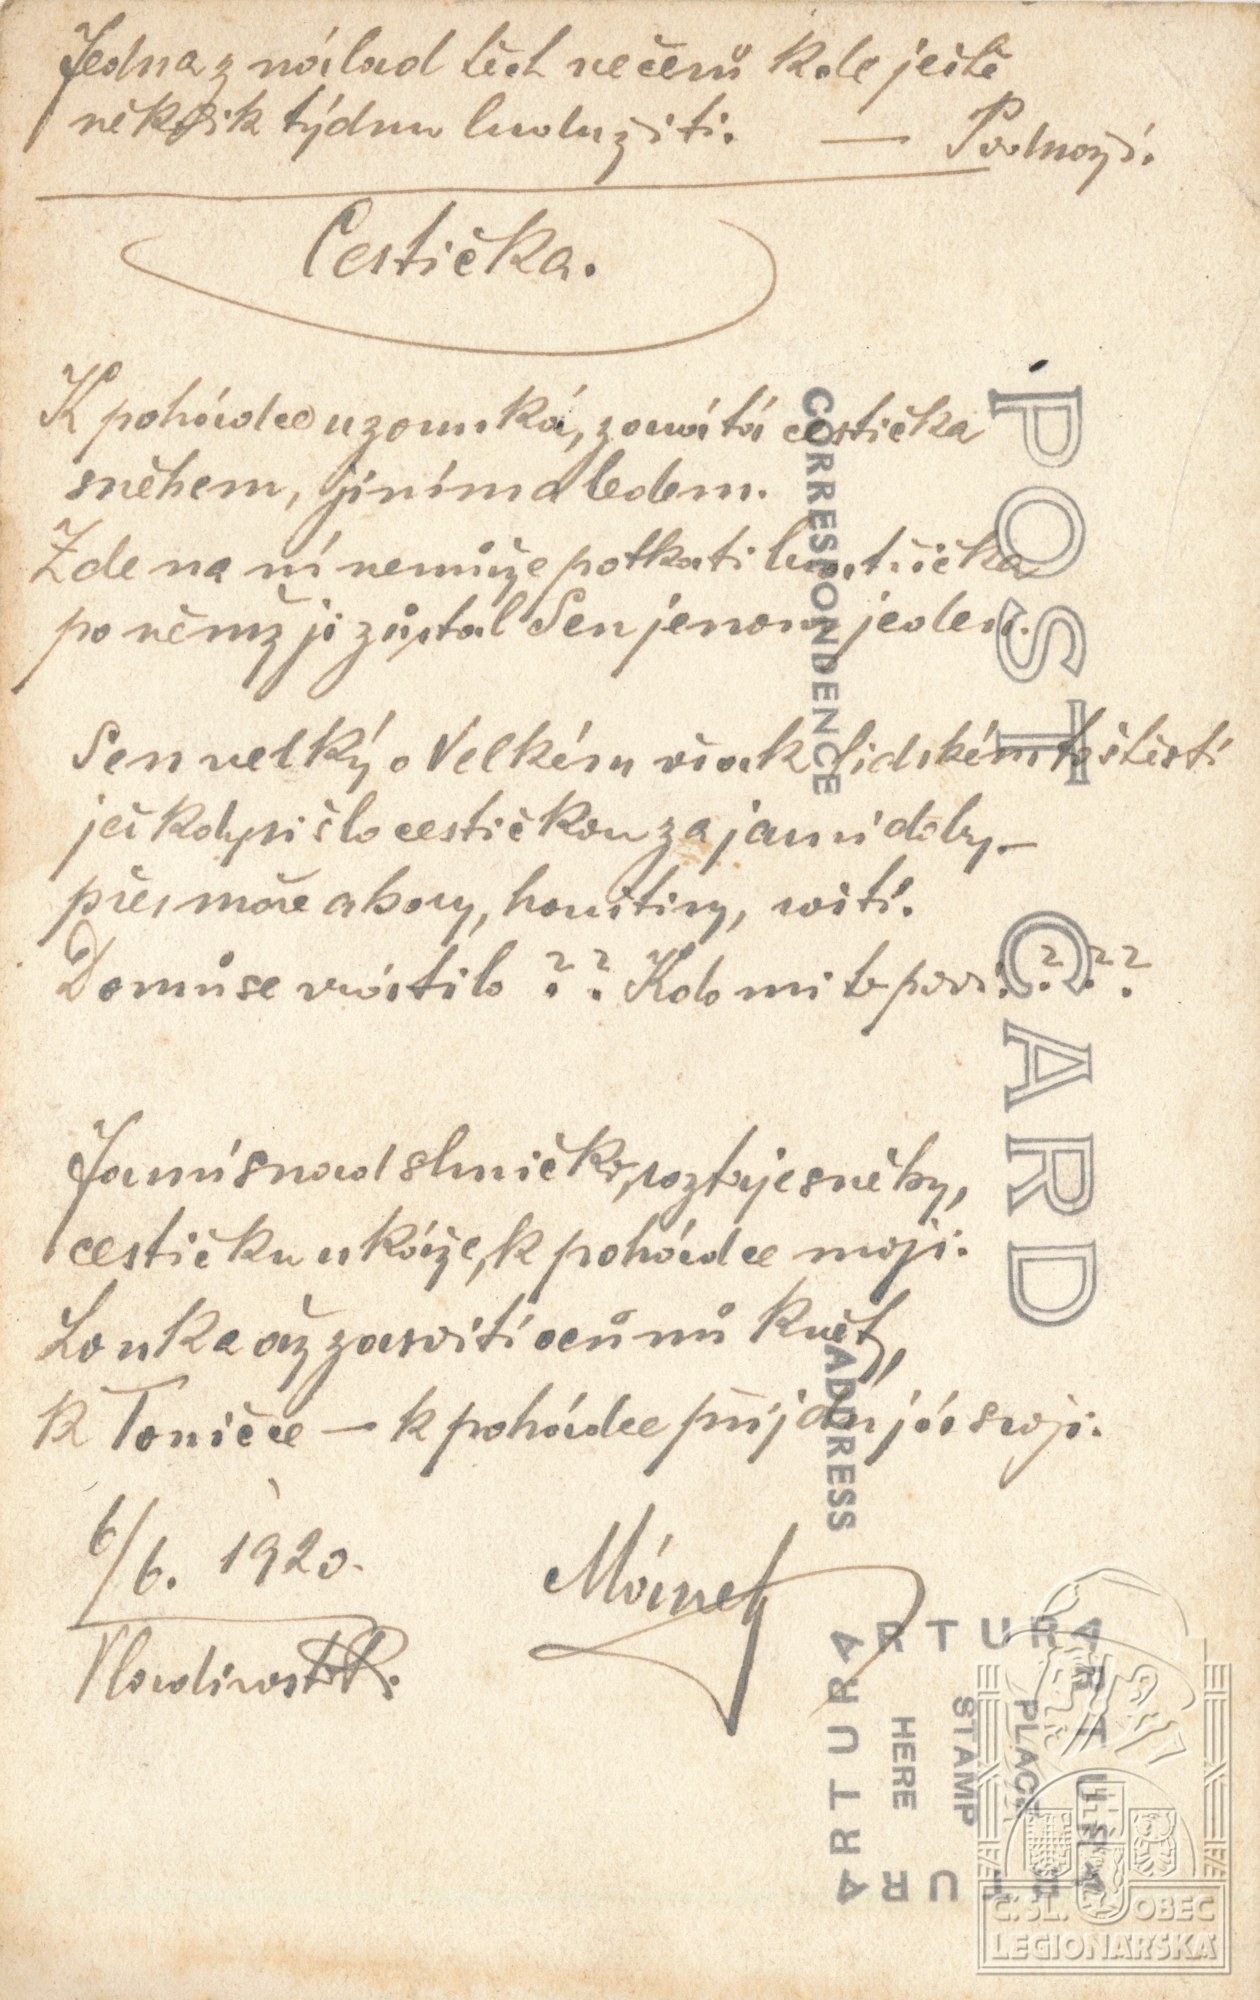 Jedna z nálad těch večerů kde ještě
několik týdnu budu žíti. — Podnoží.
Cestička.
K pohádce uzounká, zavátá cestička
sněhem, jíním a ledem.
Zde na ní nemůže potkati bratříčka
po němž ji zůstal Sen jenom jeden.
Sen velký o Velkém však lidském to štěstí
jež kdysi šlo cestičkou za jarní doby —
přes moře a hory, houštiny, roští.
Domů se vrátilo ?? Kdo mi to poví ? ??
Jarní snad sluníčko, roztaje sněhy,
cestičku ukáže, k pohádce moji.
Louka až zasvítí očům květ,
k Toničce — k pohádce přijdu já svoji.
6/6. 1920.
Vladivostok.
POST CARD
CORRESPONDENCE
ADDRESS
ARTURA
ARTURA
ARTURA
PLACE
STAMP
HERE
Č. SL. OBEC
LEGIONÁŘSKÁ